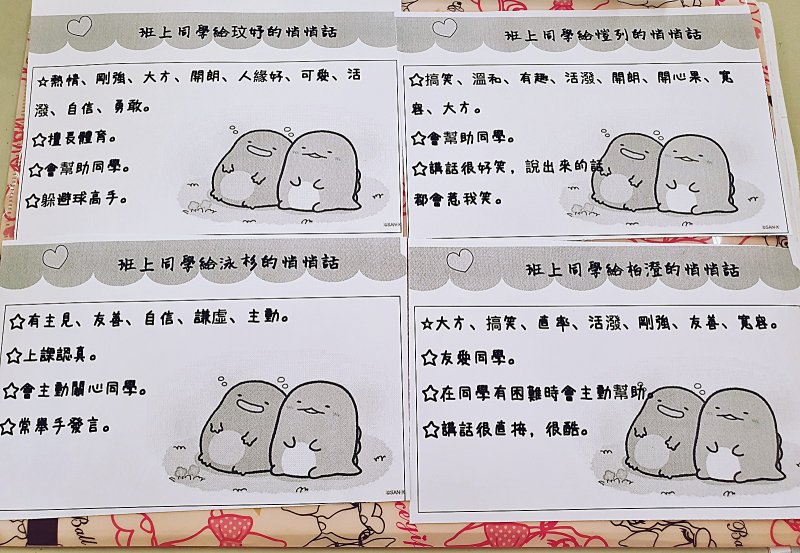 班上同學給玟妤的悄悄話
☆熱情、剛強、大方、開朗、人緣好、可愛、活
潑、自信、勇敢。
☆擅長體育。
☆會幫助同學。
☆躲避球高手。
©SAN-X
班上同學給愷列的悄悄話
☆搞笑、溫和、有趣、活潑、開朗、開心果、寬
容、大方。
☆會幫助同學。
☆講話很好笑，說出來的話
都會惹我笑。
©SAN-X
班上同學給泳杉的悄悄話
☆有主見、友善、自信、謙虛、主動。
☆上課認真。
☆會主動關心同學。
☆常舉手發言。
©SAN-X
班上同學給柏澄的悄悄話
☆大方、搞笑、直率、活潑、剛強、友善、寬容。
☆友愛同學。
☆在同學有困難時會主動幫助。
☆講話很直接，很酷。
Ball